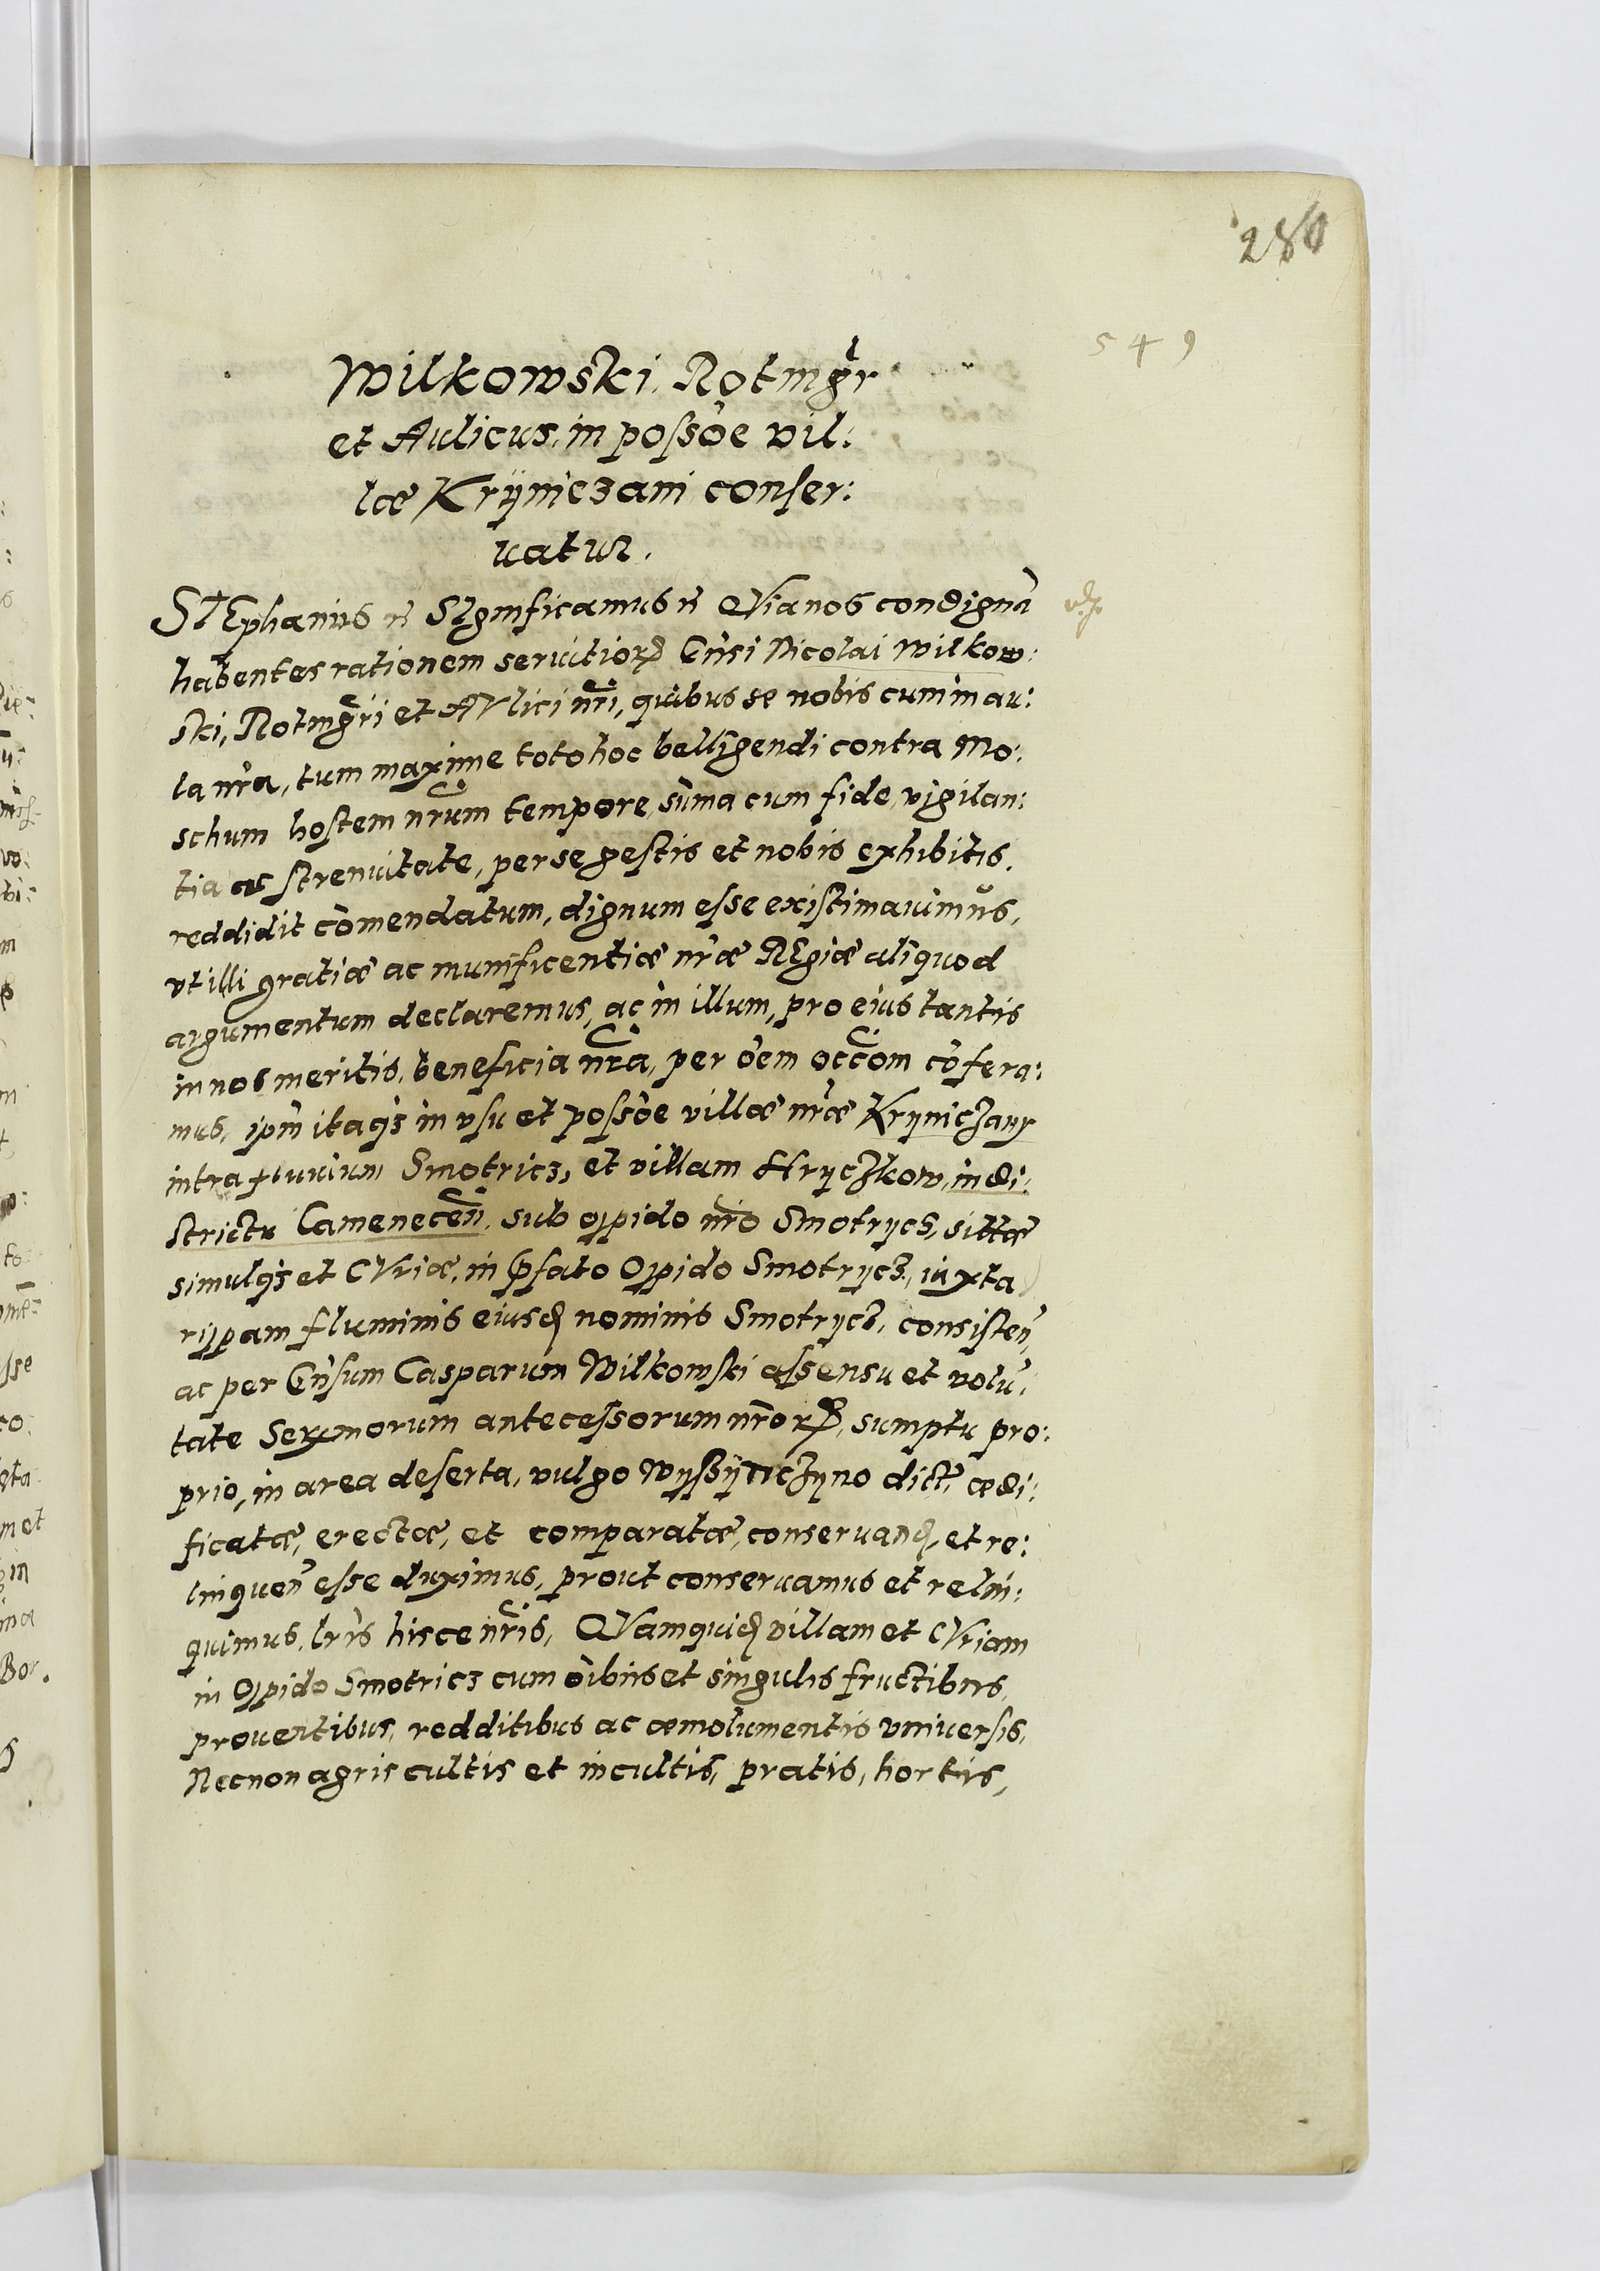 280
549
Wilkowski, Rotmgr̃
et Aulicus, in possõe vil:
læ Kryniczani conser:
uatur.
STEphanus rẽ SIgnificamus rẽ QVia nos condignã
habentes rationem seruitiorꝝ Gñsi Nicolai Wilkow:
ski, Rotmgr̃i et AVlici nr̃i, quibus se nobis cum in au:
la nr̃a, tum maxime toto hoc belligendi contra Mo:
schum hostem nr̃um tempore, sũma cum fide, vigilan:
tia ac strenuitate, per se gestis et nobis exhibitis.
reddidit cõmendatum, dignum esse existimauimus,
vt illi gratiæ ac munificentiæ nr̃æ REgiæ aliquod
argumentum declaremus, ac in illum, pro eius tantis
in nos meritis, beneficia nr̃a, per õem occõm cõfera:
mus, ipm̃ itaqꝫ in vsu et possõe villæ nr̃æ Kryniczany
intra fluuium Smotricz, et villam Hryczkow, in di:
strictu Camenecen̄, sub oppido nr̃o Smotrycz, sittæ
simulqꝫ et CVriæ, in p̃fato Oppido Smotrycz, iuxta
rypam fluminis eiusd nominis Smotrycz, consisteñ,
ac per Gñsum Casparum Wilkowski assensu et volũ:
tate Serxmorum antecessorum nr̃orꝝ, sumptu pro:
prio, in area deserta, vulgo Wyssÿticzyno dict, ædi:
ficatæ, erectæ, et comparatæ, conseruand, et re:
linqueñ esse duximus, prout conseruamus et relin:
quimus, lr̃is hisce nr̃is, QVamquid villam et CVriam
in Oppido Smotricz cum õibus et singulis fructibus,
prouentibus, redditibus ac æmolumentis vniuersis,
Necnon agris cultis et incultis, pratis, hortis,